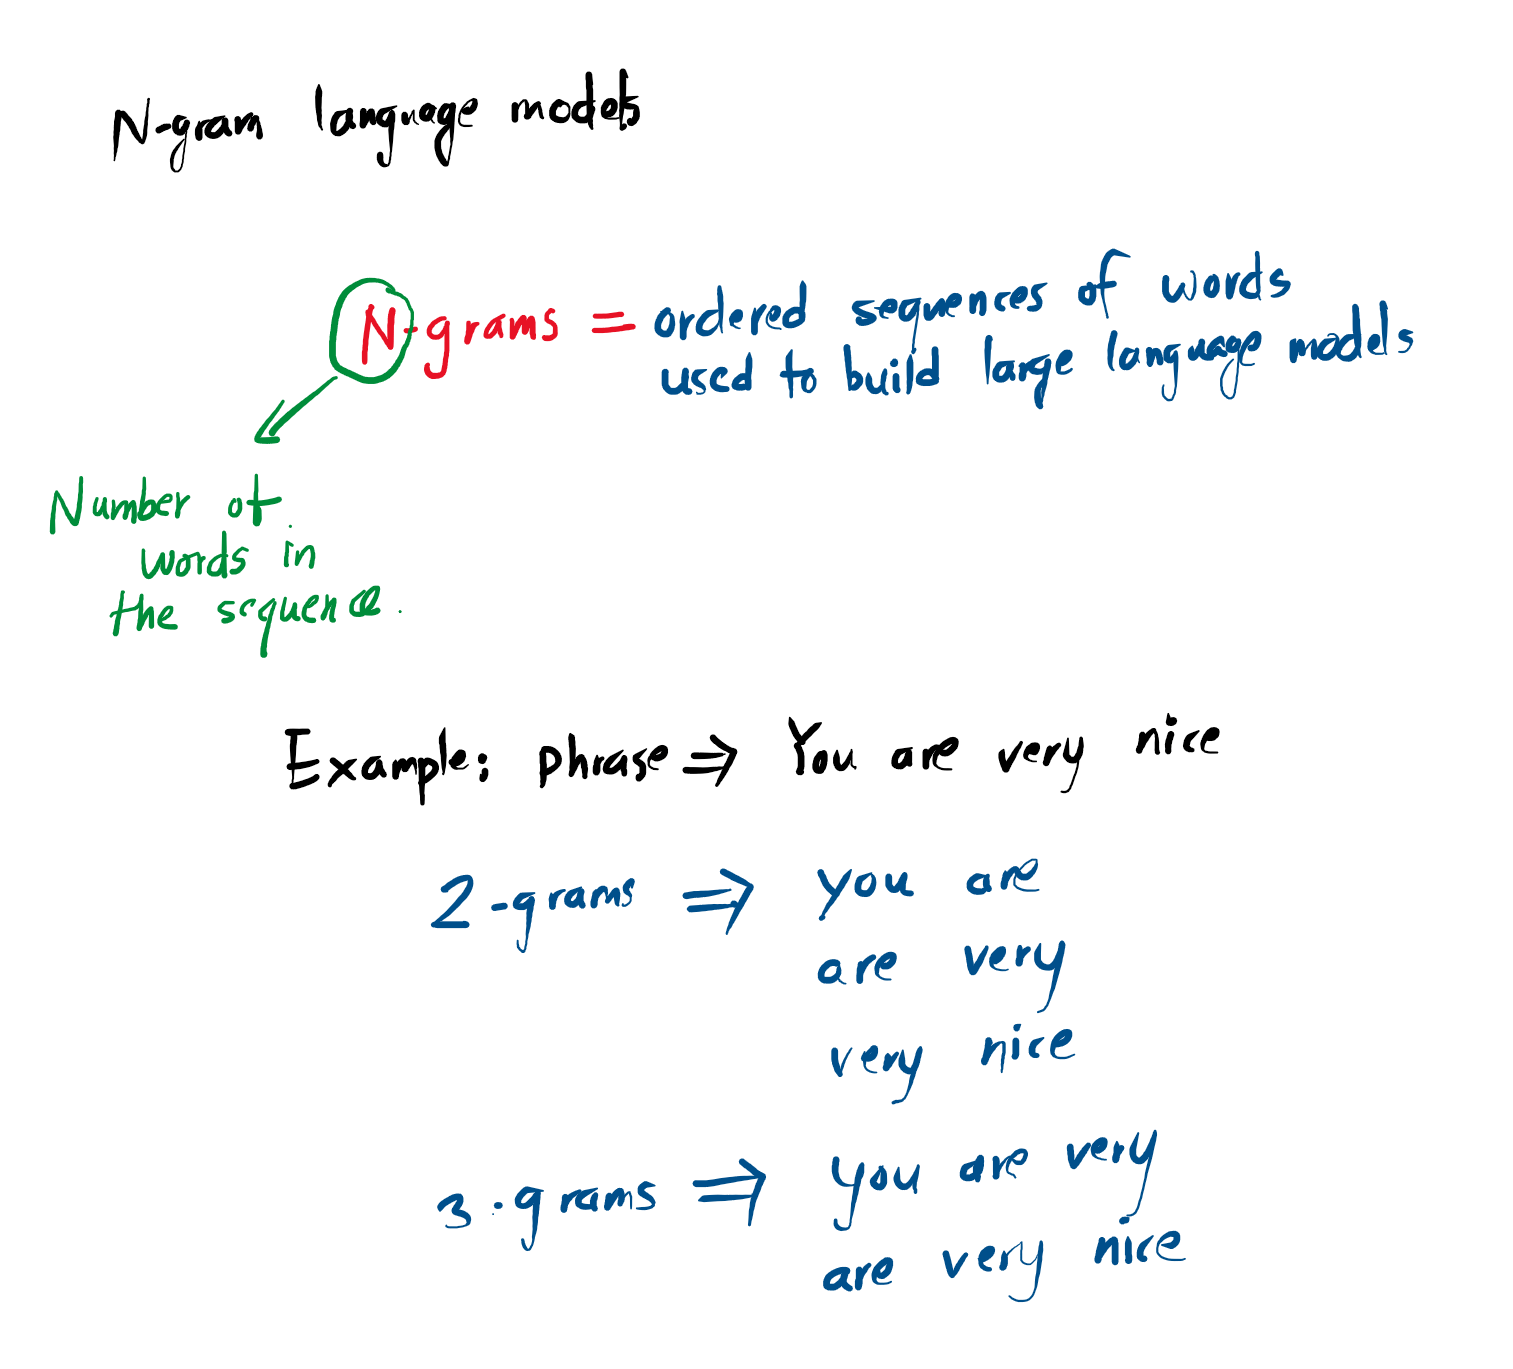 N-gram language models
N-grams = ordered sequences of words
used to build large language models
Number of
words in
the sequence.
Example: phrase ⇒ You are very nice
2-grams ⇒ you are
are very
very nice
3-grams ⇒ you are very
are very nice